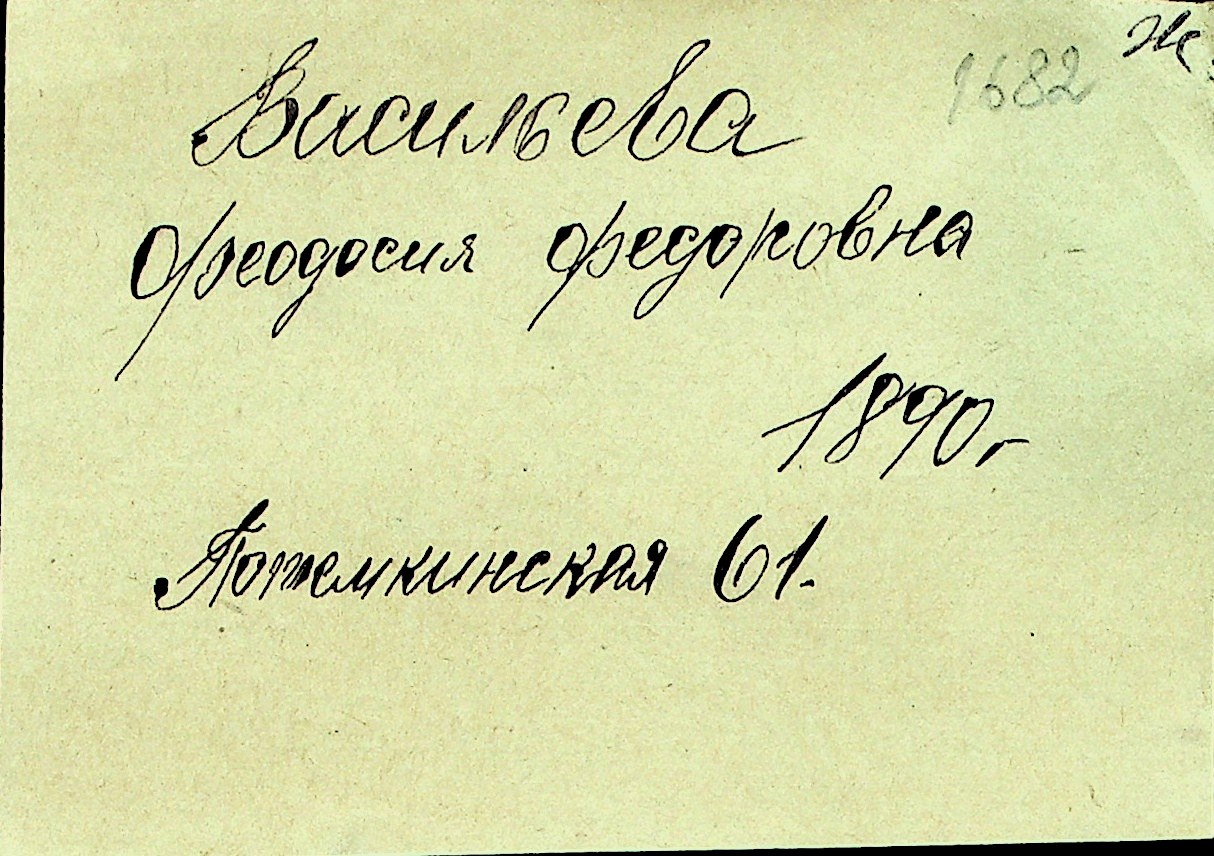 1682 Ж.
Васильева
Феодосия Федоровна
1890 г
Потемкинская 61.